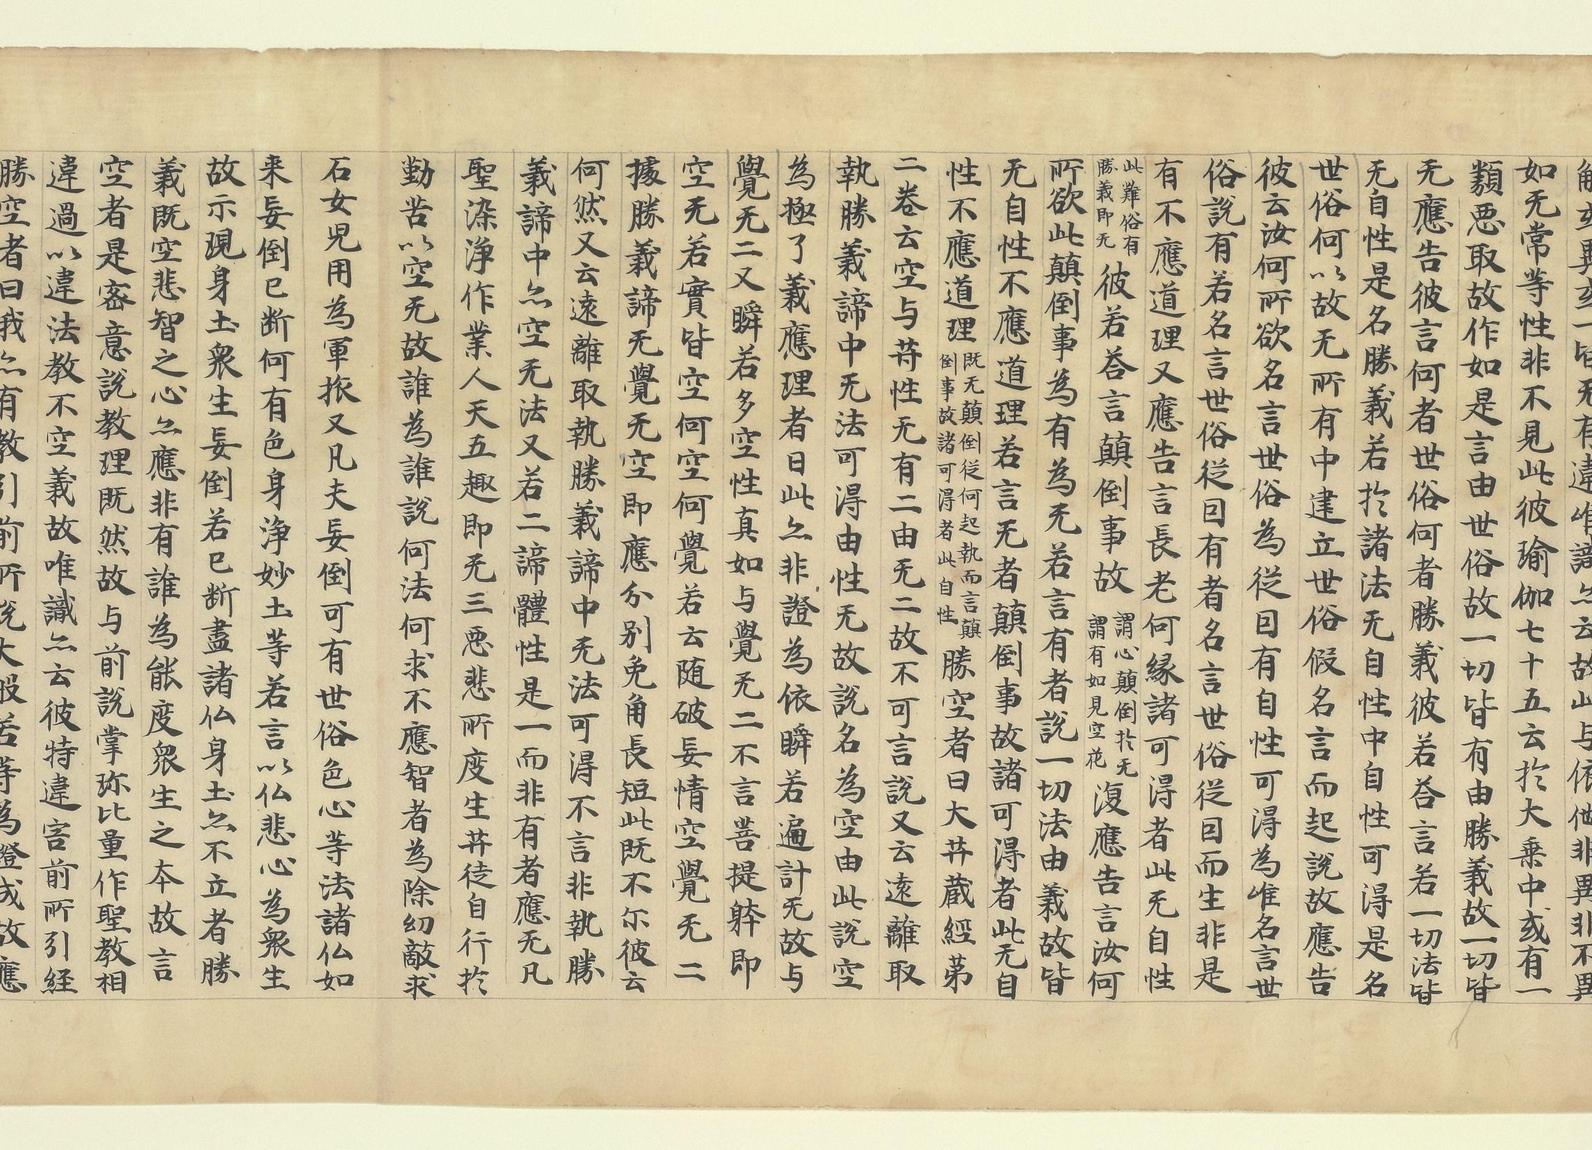 解或異或一皆无有違唯識亦云故此与依他非異非不異
如无常等性非不見此彼瑜伽七十五云於大乗中或有一
類惡取故作如是言由世俗故一切皆有由勝義故一切皆
无應告彼言何者世俗何者勝義彼若荅言若一切法皆
无自性是名勝義若於諸法无自性中自性可得是名
世俗何以故无所有中建立世俗假名言而起說故應告
彼云汝何所欲名言世俗為從因有自性可得為唯名言世
俗說有若名言世俗從因有者名言世俗從因而生非是
有不應道理又應告言長老何縁諸可得者此无自性
此難俗有勝義即无彼若荅言顛倒事故謂心顛倒於无謂有如見空花復應告言汝何
所欲此顛倒事為有為无若言有者說一切法由義故皆
无自性不應道理若言无者顛倒事故諸可得者此无自
性不應道理既无顛倒從何起執而言顛倒事故諸可得者此自性勝空者曰大菩蔵經苐
二卷云空与菩性无有二由无二故不可言說又云遠離取
執勝義諦中无法可得由性无故說名為空由此說空
為極了義應理者曰此亦非證為依瞬若遍計无故与
覺无二又瞬若多空性真如与覺无二不言菩提躰即
空无若實皆空何空何覺若云随破妄情空覺无二
據勝義諦无覺无空即應分别兔角長短此既不尓彼云
何然又云遠離取執勝義諦中无法可得不言非執勝
義諦中亦空无法又若二諦體性是一而非有者應无凡
聖染浄作業人天五趣即无三惡悲所度生菩徒自行於
勤苦以空无故誰為誰說何法何求不應智者為除幻敵求
石女児用為軍旅又凡夫妄倒可有世俗色心等法諸仏如
来妄倒已断何有色身浄妙土等若言以仏悲心為衆生
故示現身土衆生妄倒若已断盡諸仏身土亦不立者勝
義既空悲智之心亦應非有誰為能度衆生之本故言
空者是密意說教理既然故与前說掌珎比量作聖教相
違過以違法教不空義故唯識亦云彼特違害前所引経
勝空者曰我亦有教引前所說大般若等為證成故應